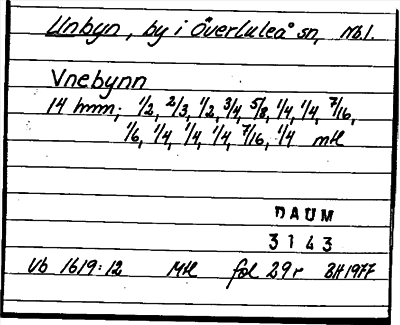 Unbyn, by i Överluleå sn, Nbl.
Vnebynn
14 hmm; 1/2, 2/3, 1/2, 3/4, 5/8, 1/4, 1/4, 7/16,
1/6, 1/4, 1/4, 1/4, 7/16, 1/4 mtl
DAUM
3143
Vb 1619:12 Mtl fol 29r BH 1977